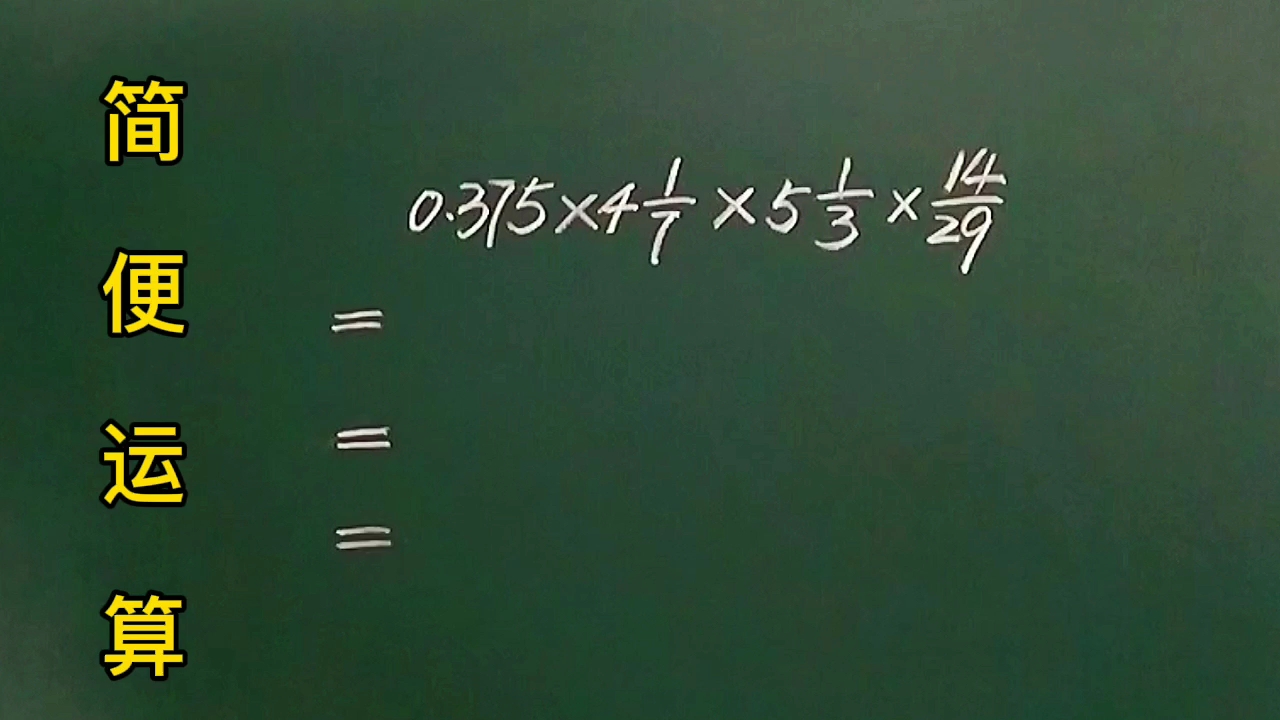 简便运算
0.375×4 1/7 ×5 1/3 × 14/29
=
=
=